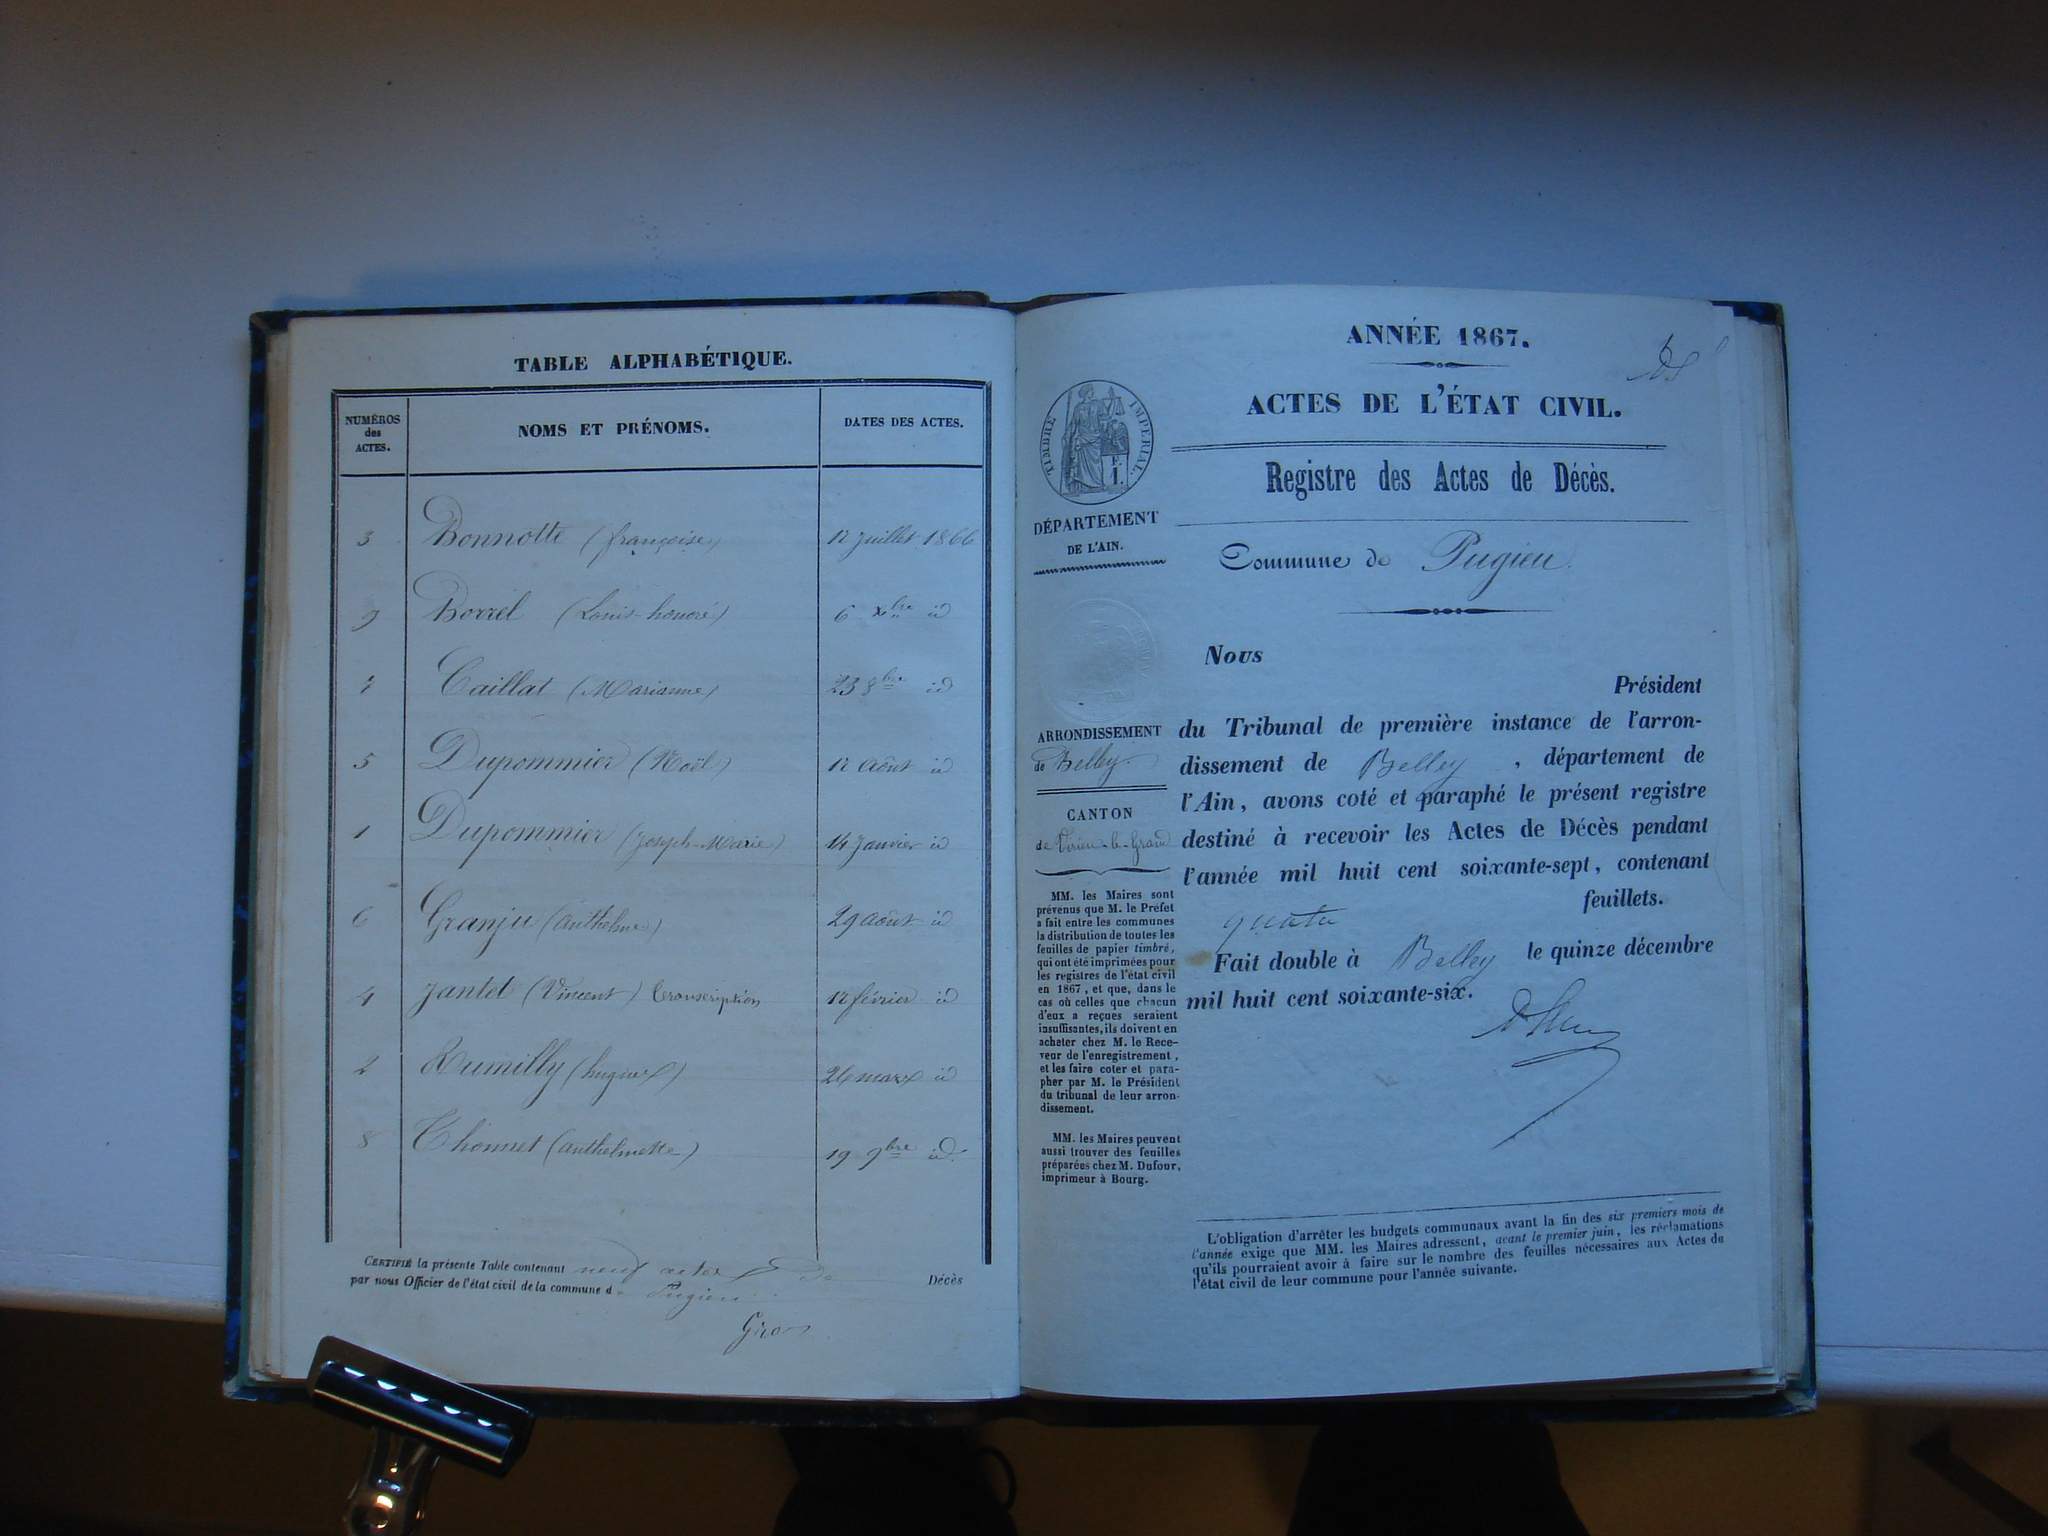 TABLE ALPHABÉTIQUE.
NUMÉROS
des
ACTES.
NOMS ET PRÉNOMS.
DATES DES ACTES.
3 Bonnotte (françoise) 12 Juillet 1866
9 Borrel (Louis-honoré) 6 Xbre id
7 Caillat (Marianne) 23 8bre id
5 Dupommier (Noël) 12 Août id
1 Dupommier (Joseph-Marie) 14 Janvier id
6 Granju (Anthelme) 29 Août id
4 Jantet (Vincent) transcription 12 février id
2 Rumilly (hugues) 26 mars id
8 Thonnet (Anthelmette) 19 9bre id.
CERTIFIÉ la présente Table contenant neuf actes de Décès
par nous Officier de l'état civil de la commune de Pugieu.
ANNÉE 1867.
ACTES DE L'ÉTAT CIVIL.
Registre des Actes de Décès.
Commune de Pugieu.
TIMBRE IMPÉRIAL.
F.
1.
DÉPARTEMENT
DE L'AIN.
ARRONDISSEMENT
de Belley.
CANTON
de Virieu-le-Grand
MM. les Maires sont
prévenus que M. le Préfet
a fait entre les communes
la distribution de toutes les
feuilles de papier timbré,
qui ont été imprimées pour
les registres de l'état civil
en 1867, et que, dans le
cas où celles que chacun
d'eux a reçues seraient
insuffisantes, ils doivent en
acheter chez M. le Rece-
veur de l'enregistrement,
et les faire coter et para-
pher par M. le Président
du tribunal de leur arron-
dissement.
MM. les Maires peuvent
aussi trouver des feuilles
préparées chez M. Dufour,
imprimeur à Bourg.
Nous
Président
du Tribunal de première instance de l'arron-
dissement de Belley, département de
l'Ain, avons coté et paraphé le présent registre
destiné à recevoir les Actes de Décès pendant
l'année mil huit cent soixante-sept, contenant
quatre feuillets.
Fait double à Belley le quinze décembre
mil huit cent soixante-six.
L'obligation d'arrêter les budgets communaux avant la fin des six premiers mois de
l'année exige que MM. les Maires adressent, avant le premier juin, les réclamations
qu'ils pourraient avoir à faire sur le nombre des feuilles nécessaires aux Actes de
l'état civil de leur commune pour l'année suivante.